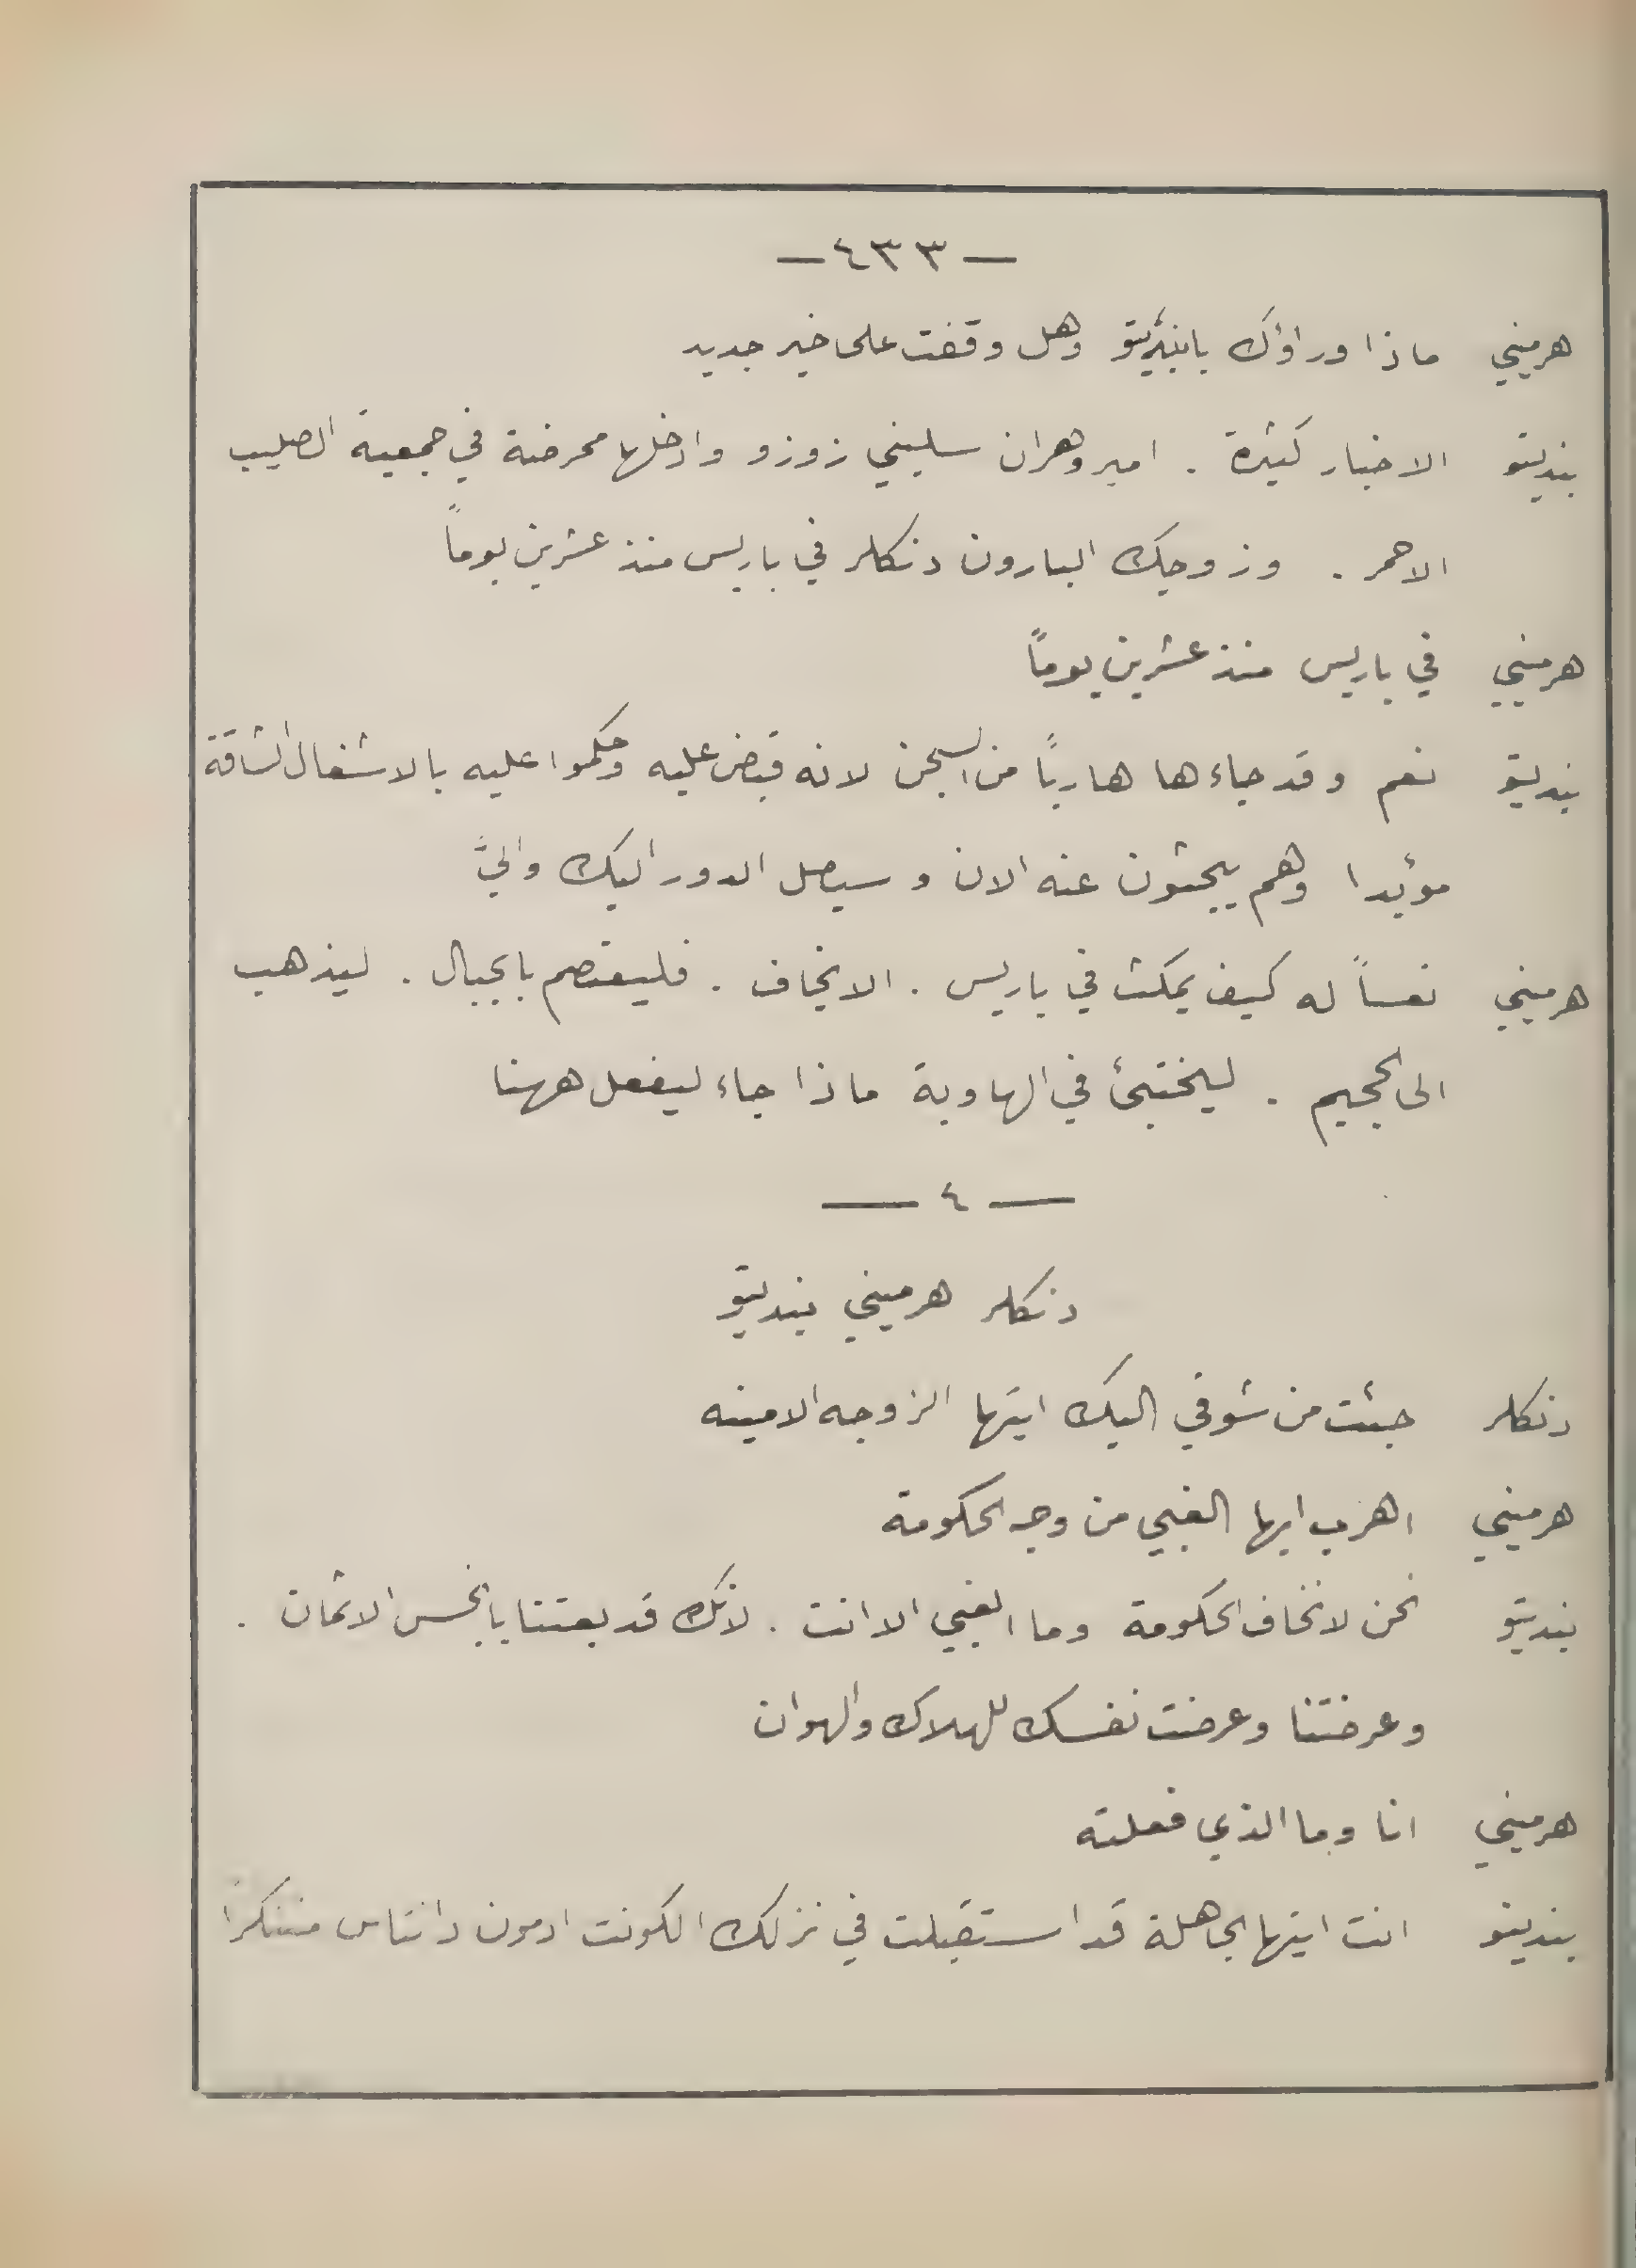 — ٤٣٣ —
هرميني ماذا وراؤك يابنديتو وهل وقفت على خبر جديد
بنديتو الاخبار كثيرة . امير وهران سليني زوزو وادخلها ممرضة في جمعية الصليب
الاحمر . وزوجك البارون دنكلر في باريس منذ عشرين يوماً
هرميني في باريس منذ عشرين يوماً
بنديتو نعم وقد جاءها هارباً من السجن لانه قبض عليه وحكموا عليه بالاشغال الشاقة
مؤبدا وهم يبحثون عنه الان وسيصل الدور اليك واليَّ
هرميني تعساً له كيف يمكث في باريس . الا يخاف . فليعتصم بالجبال . ليذهب
الى الجحيم . ليختبئ في الهاوية ماذا جاء ليفعل ههنا
— ٤ —
دنكلر هرميني بنديتو
دنكلر جئت من شوقي اليك ايتها الزوجه الامينه
هرميني اهرب ايها الغبي من وجه الحكومة
بنديتو نحن لا نخاف الحكومة وما الغبي الا انت . لانك قد بعتنا بابخس الاثمان .
وعرضتنا وعرضت نفسك للهلاك والهوان
هرميني انا وما الذي فعلته
بنديتو انت ايتها الجاهلة قد استقبلت في نزلك الكونت ادمون دانتاس متنكراً